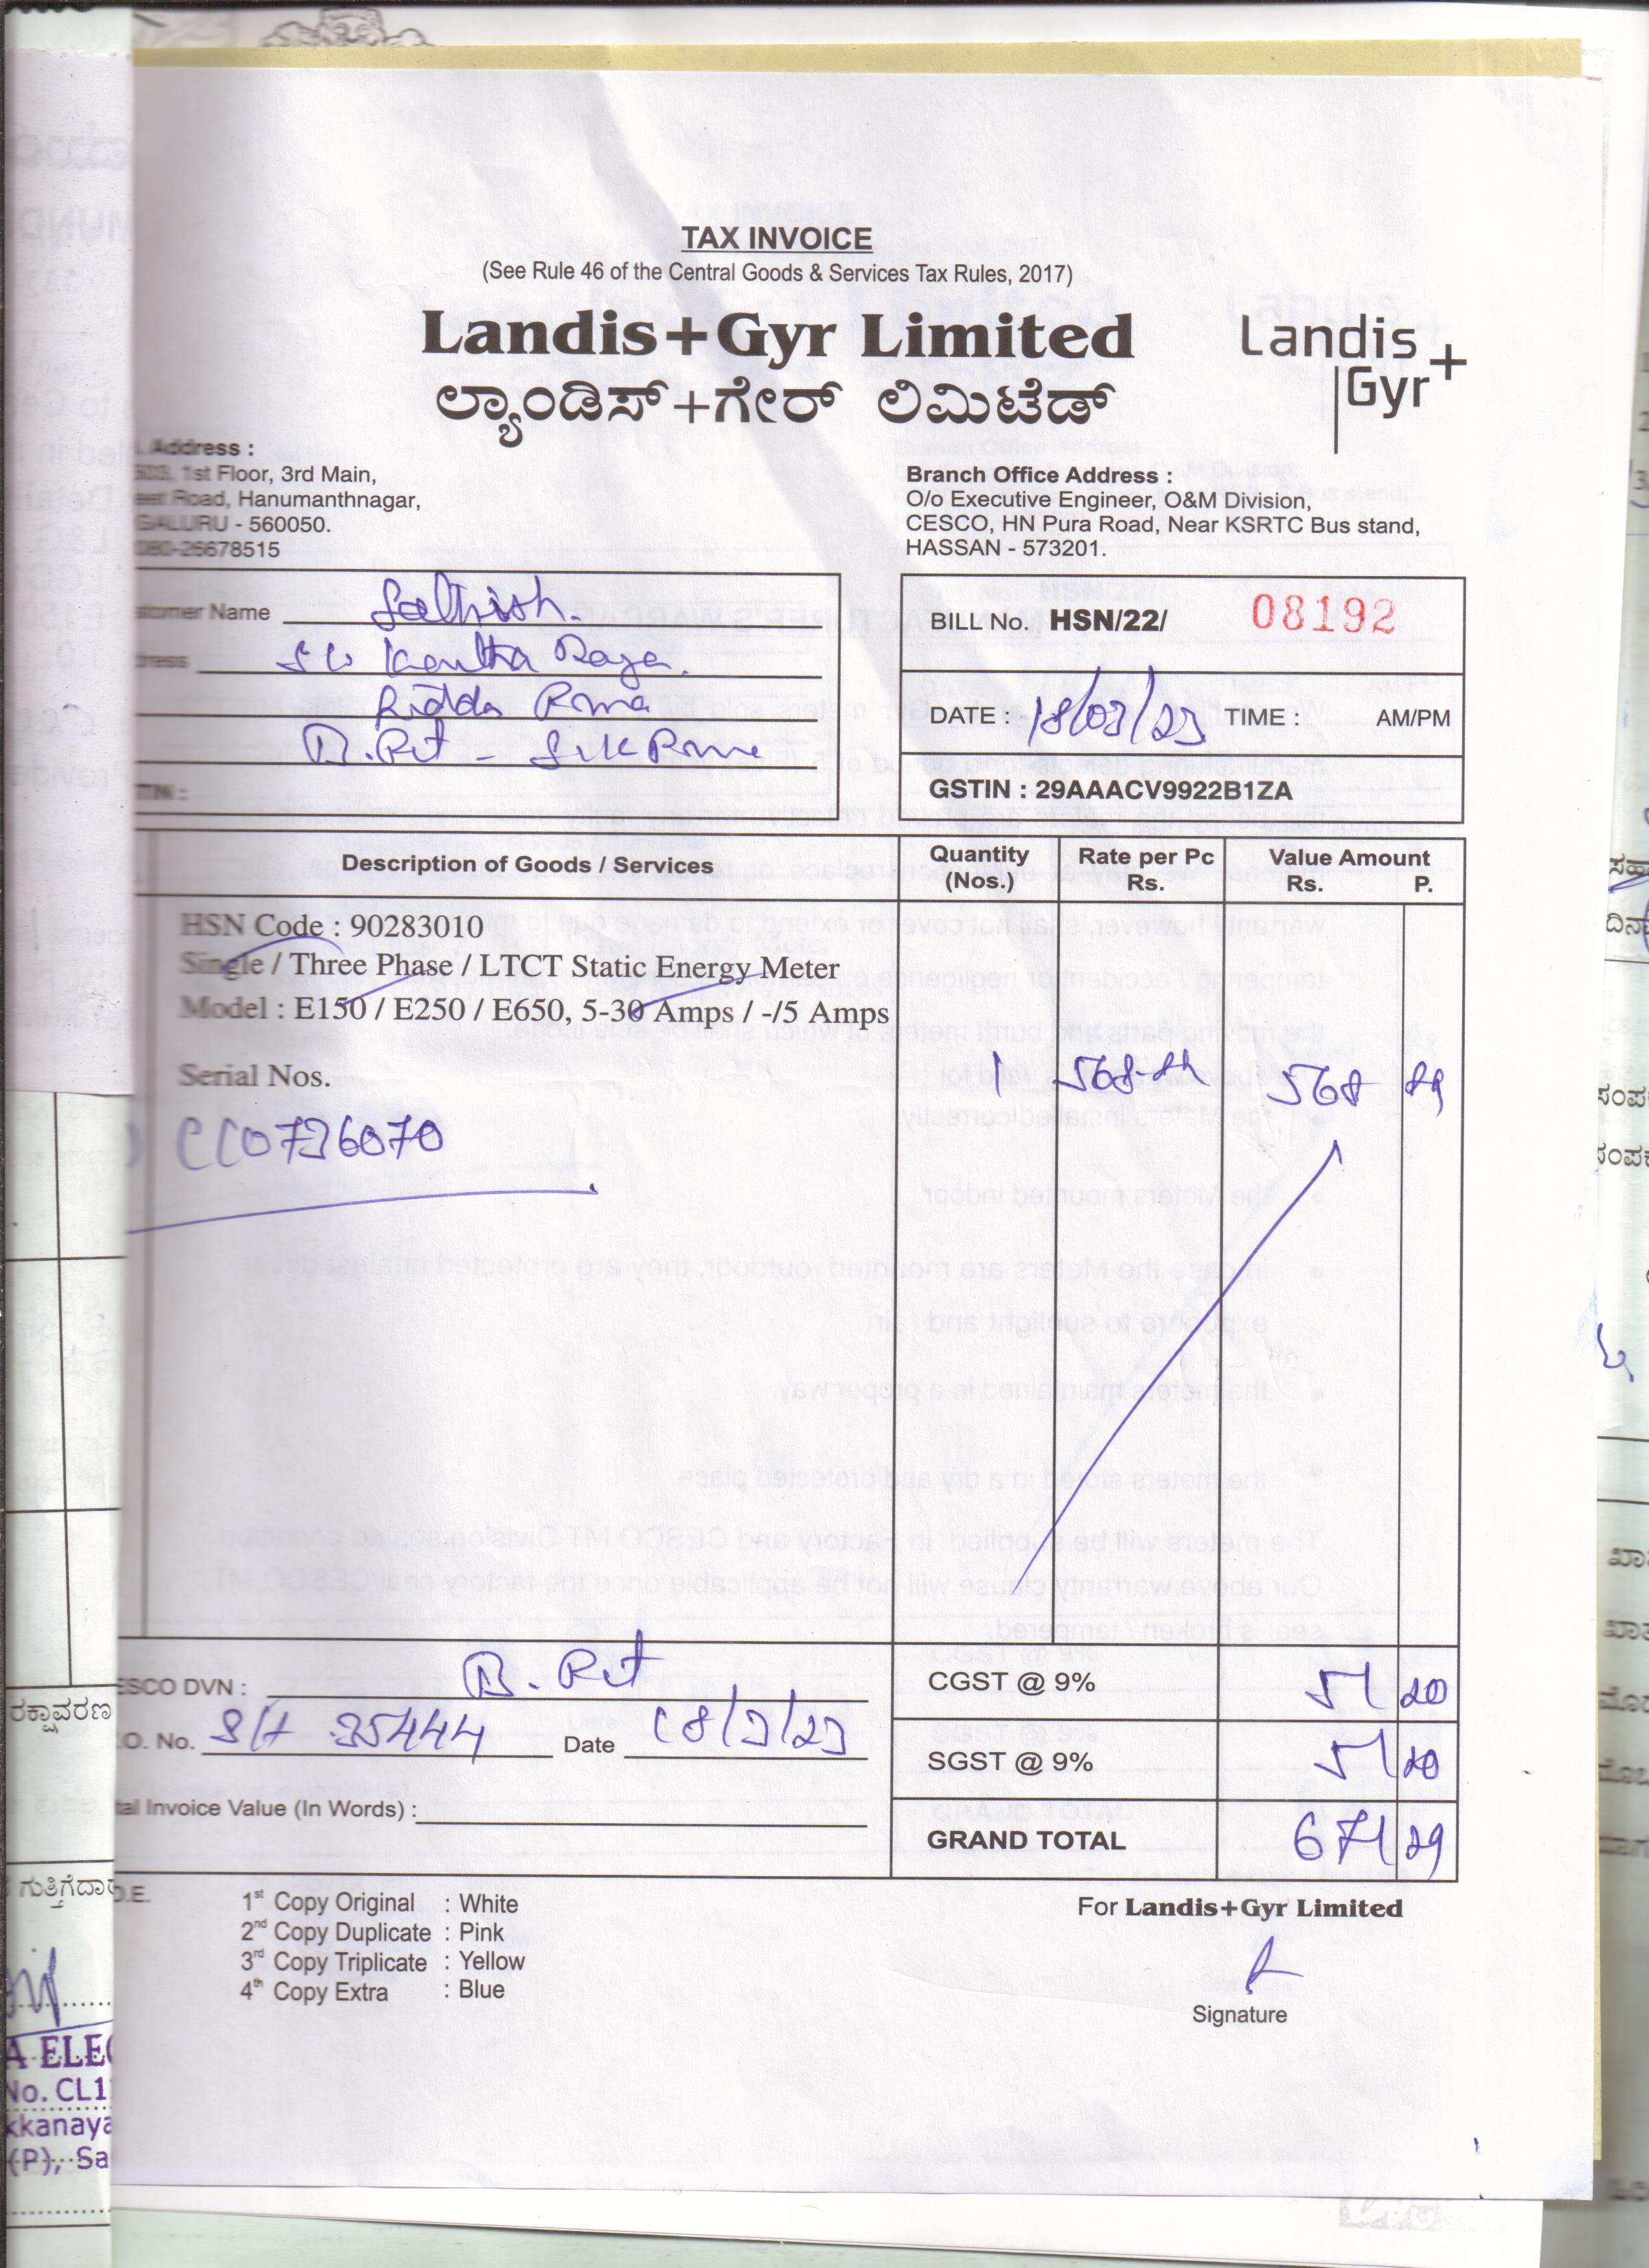 TAX INVOICE
(See Rule 46 of the Central Goods & Services Tax Rules, 2017)
Landis+Gyr Limited
ಲ್ಯಾಂಡಿಸ್+ಗೇರ್ ಲಿಮಿಟೆಡ್
Landis
Gyr+
Address :
1st Floor, 3rd Main,
Road, Hanumanthnagar,
GALURU - 560050.
080-26678515
Branch Office Address :
O/o Executive Engineer, O&M Division,
CESCO, HN Pura Road, Near KSRTC Bus stand,
HASSAN - 573201.
tomer Name Sathish.
ress S/o Kantha Raja.
B. Pet -
TIN :
BILL No. HSN/22/ 08192
DATE : 18/03/23 TIME : AM/PM
GSTIN : 29AAACV9922B1ZA
Description of Goods / Services
Quantity (Nos.)
Rate per Pc Rs.
Value Amount Rs. P.
HSN Code : 90283010
Single / Three Phase / LTCT Static Energy Meter
Model : E150 / E250 / E650, 5-30 Amps / -/5 Amps
Serial Nos.
1 568-89 568 89
CC0736070
ESCO DVN : B. Pet
CGST @ 9% 51 20
O. No. 35444 Date 18/3/23
SGST @ 9% 51 20
tal Invoice Value (In Words) :
GRAND TOTAL 671 29
O.E.
1st Copy Original : White
2nd Copy Duplicate : Pink
3rd Copy Triplicate : Yellow
4th Copy Extra : Blue
For Landis+Gyr Limited
Signature
ರಕ್ಷಾವರಣ
ಗುತ್ತಿಗೆದಾರ
A ELEC
No. CL1
kkanaya
(P), Sa